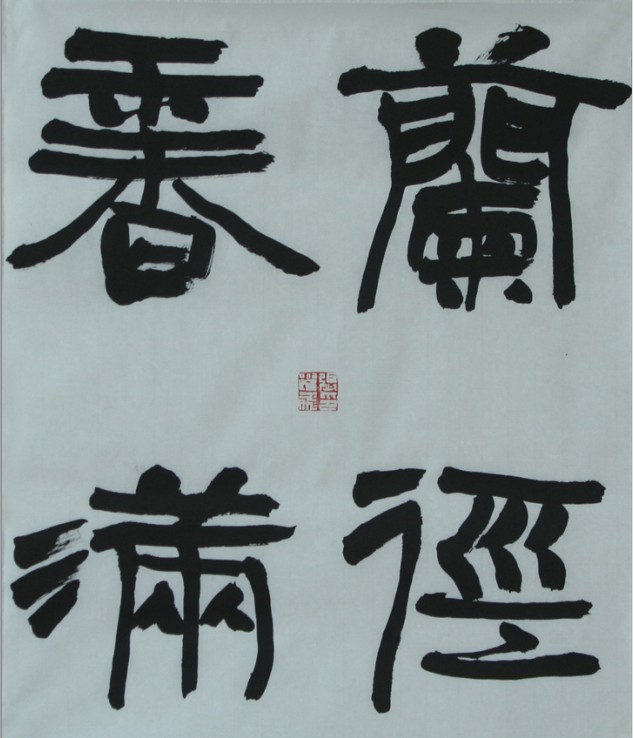 蘭徑
香滿